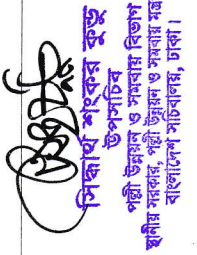 সিদ্ধার্থ শংকর কুন্ডু
উপসচিব
পল্লী উন্নয়ন ও সমবায় বিভাগ
স্থানীয় সরকার, পল্লী উন্নয়ন ও সমবায় মন্ত্র
বাংলাদেশ সচিবালয়, ঢাকা।